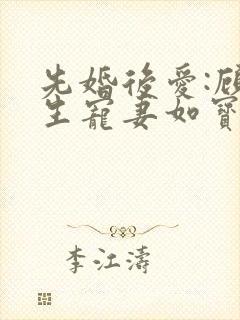 先婚後愛:顧
生寵妻如寶
李江濤